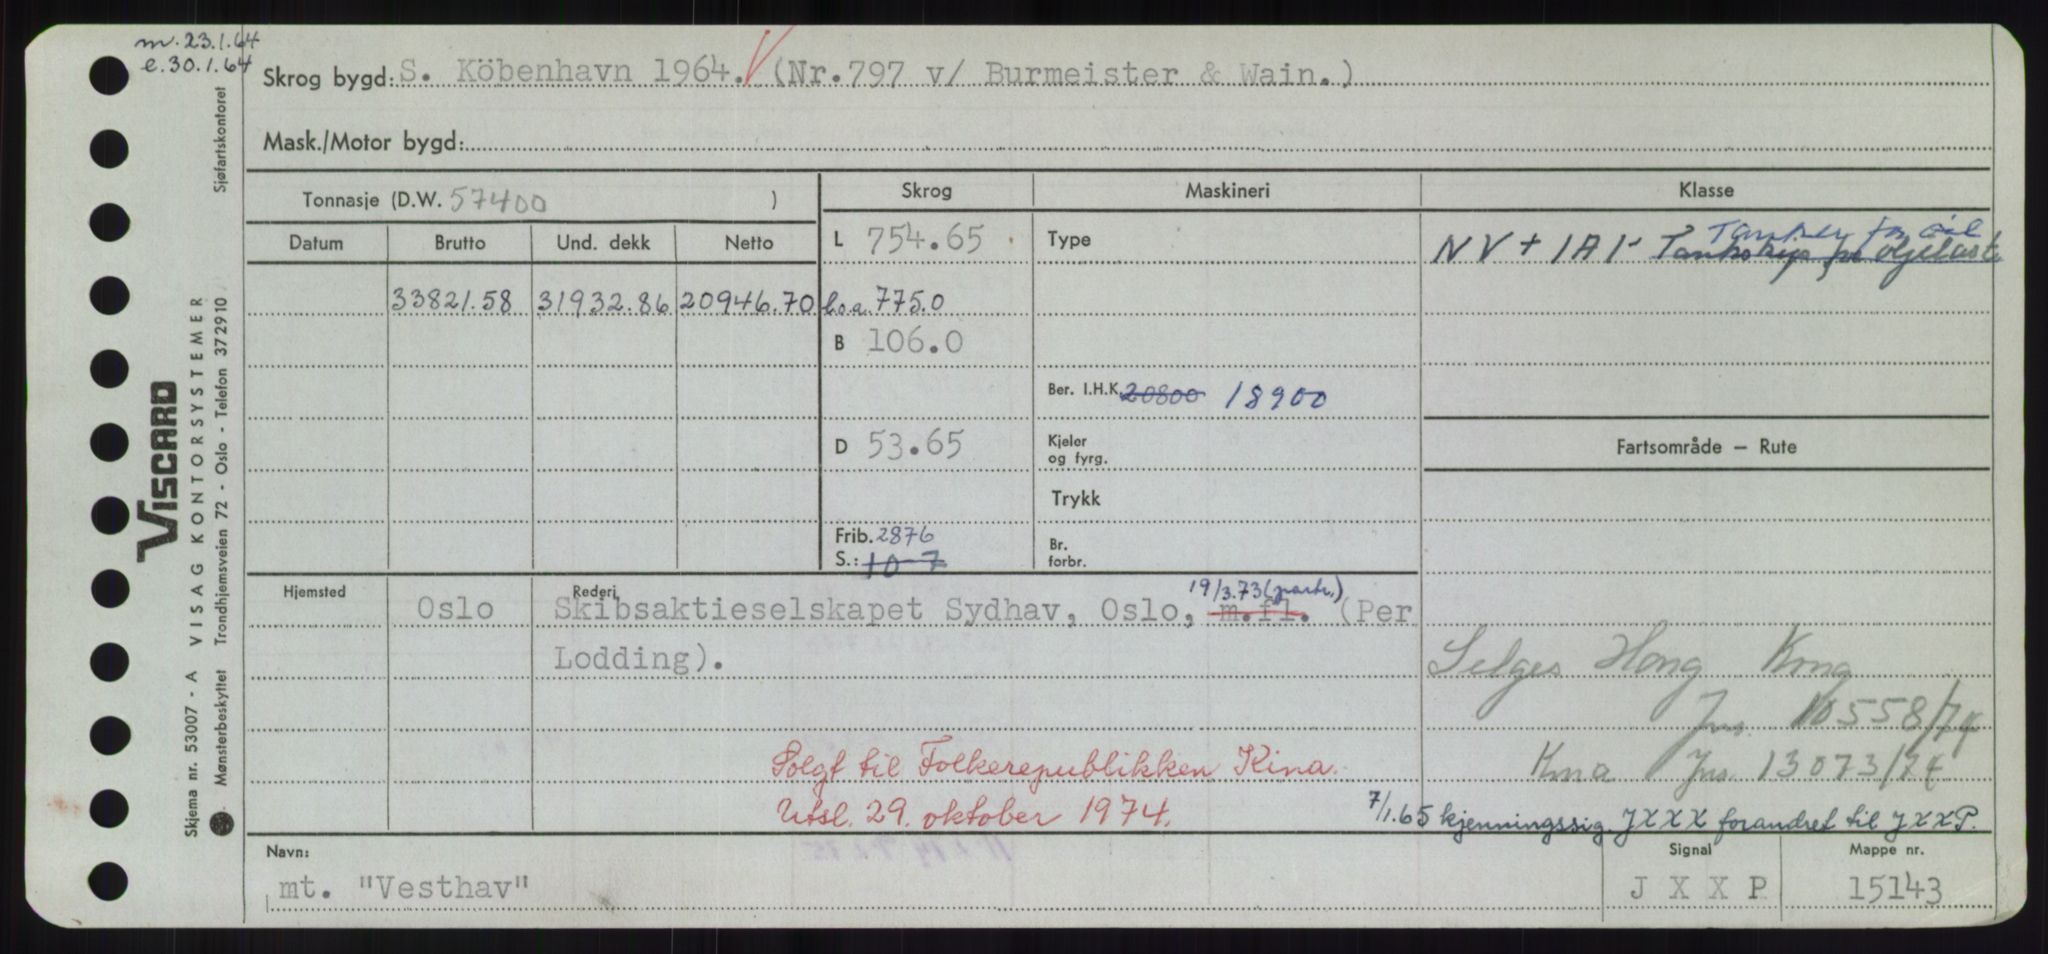 m. 23.1.64
e. 30.1.64
Skrog bygd: S. Köbenhavn 1964. (Nr.797 v/ Burmeister & Wain.)
Mask./Motor bygd:
Tonnasje (D.W. 57400 )
Skrog
Maskineri
Klasse
Datum
Brutto
Und. dekk
Netto
L 754.65
Type
Tanker for oil
NV + 1A1- Tankskip for oljelast
33821.58 31932.86 20946.70
l.o.a. 775.0
B 106.0
Ber. I.H.K. 20800 18900
D 53.65
Kjeler
og fyrg.
Fartsområde — Rute
Trykk
Frib. 2876
S.: 10-7
Br.
forbr.
Hjemsted
Rederi
19/3.73 (partr.)
Oslo
Skibsaktieselskapet Sydhav, Oslo, m.fl. (Per
Lodding).
Selges Hong Kong
Jns. 10558/74
Kina Jns. 13073/74
Solgt til Folkerepublikken Kina.
Utsl. 29. oktober 1974.
7/1.65 kjenningssig. JXXX forandret til JXXP.
Navn:
Signal
Mappe nr.
mt. "Vesthav"
J X X P
15143
VISCARD
Skjema nr. 53007 - A VISAG KONTORSYSTEMER
Mønsterbeskyttet Trondhjemsveien 72 - Oslo - Telefon 372910 Sjøfartskontoret